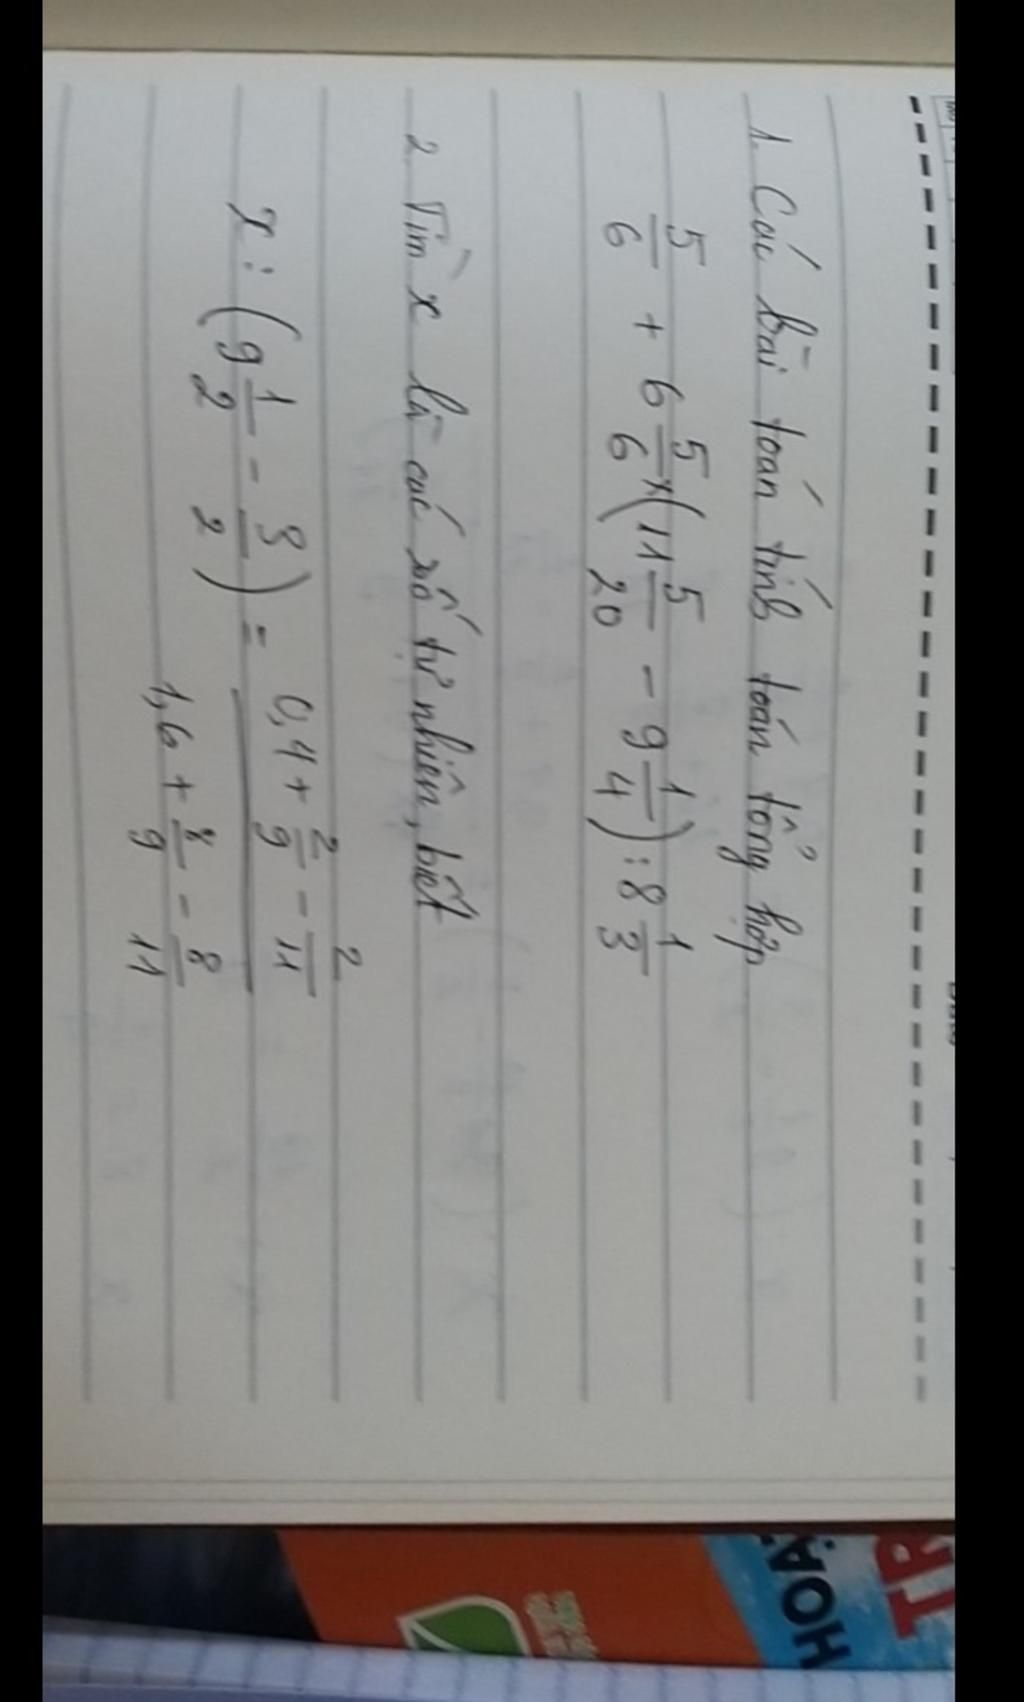 1. Các bài toán tính toán tổng hợp
5/6 + 6 5/6 x (11 5/20 - 9 1/4) : 8 1/3
2. Tìm x là các số tự nhiên, biết
x : (9 1/2 - 3/2) = (0,4 + 2/9 - 2/11) / (1,6 + 8/9 - 8/11)
HOẠ
TR